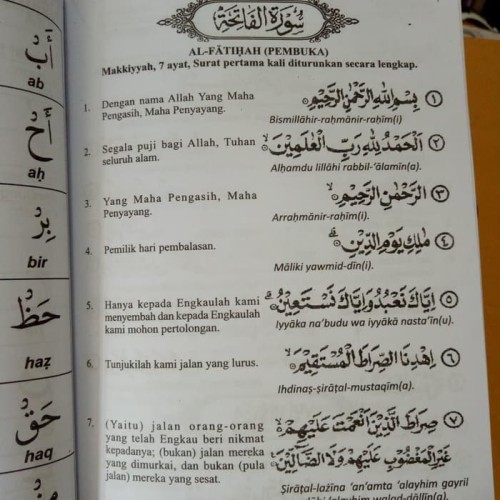 أَبْ
ab
أَحْ
aḥ
بِرْ
bir
حَظْ
haẓ
حَقْ
haq
سُوْرَةُ الْفَاتِحَةِ
AL-FĀTIḤAH (PEMBUKA)
Makkiyyah, 7 ayat, Surat pertama kali diturunkan secara lengkap.
1. Dengan nama Allah Yang Maha
Pengasih, Maha Penyayang.
بِسْمِ اللّٰهِ الرَّحْمٰنِ الرَّحِيْمِ ١
Bismillāhir-raḥmānir-raḥīm(i)
2. Segala puji bagi Allah, Tuhan
seluruh alam.
اَلْحَمْدُ لِلّٰهِ رَبِّ الْعٰلَمِيْنَۙ ٢
Alḥamdu lillāhi rabbil-‘ālamīn(a).
3. Yang Maha Pengasih, Maha
Penyayang.
الرَّحْمٰنِ الرَّحِيْمِۙ ٣
Arraḥmānir-raḥīm(i).
4. Pemilik hari pembalasan.
مٰلِكِ يَوْمِ الدِّيْنِۗ ٤
Māliki yawmid-dīn(i).
5. Hanya kepada Engkaulah kami
menyembah dan kepada Engkaulah
kami mohon pertolongan.
اِيَّاكَ نَعْبُدُ وَاِيَّاكَ نَسْتَعِيْنُۗ ٥
Iyyāka na‘budu wa iyyāka nasta‘īn(u).
6. Tunjukilah kami jalan yang lurus.
اِهْدِنَا الصِّرَاطَ الْمُسْتَقِيْمَۙ ٦
Ihdinaṣ-ṣirāṭal-mustaqīm(a).
7. (Yaitu) jalan orang-orang
yang telah Engkau beri nikmat
kepadanya; (bukan) jalan mereka
yang dimurkai, dan bukan (pula
jalan) mereka yang sesat.
صِرَاطَ الَّذِيْنَ اَنْعَمْتَ عَلَيْهِمْ ەۙ ٧
غَيْرِ الْمَغْضُوْبِ عَلَيْهِمْ وَلَا الضَّاۤلِّيْنَ
Ṣirāṭal-lażīna ‘an‘amta ‘alayhim gayril